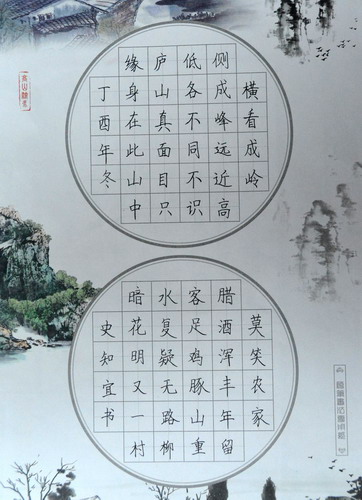 横看成岭
侧成峰远近高
低各不同不识
庐山真面目只
缘身在此山中
丁酉年冬
莫笑农家
腊酒浑丰年留
客足鸡豚山重
水复疑无路柳
暗花明又一村
史知宜书